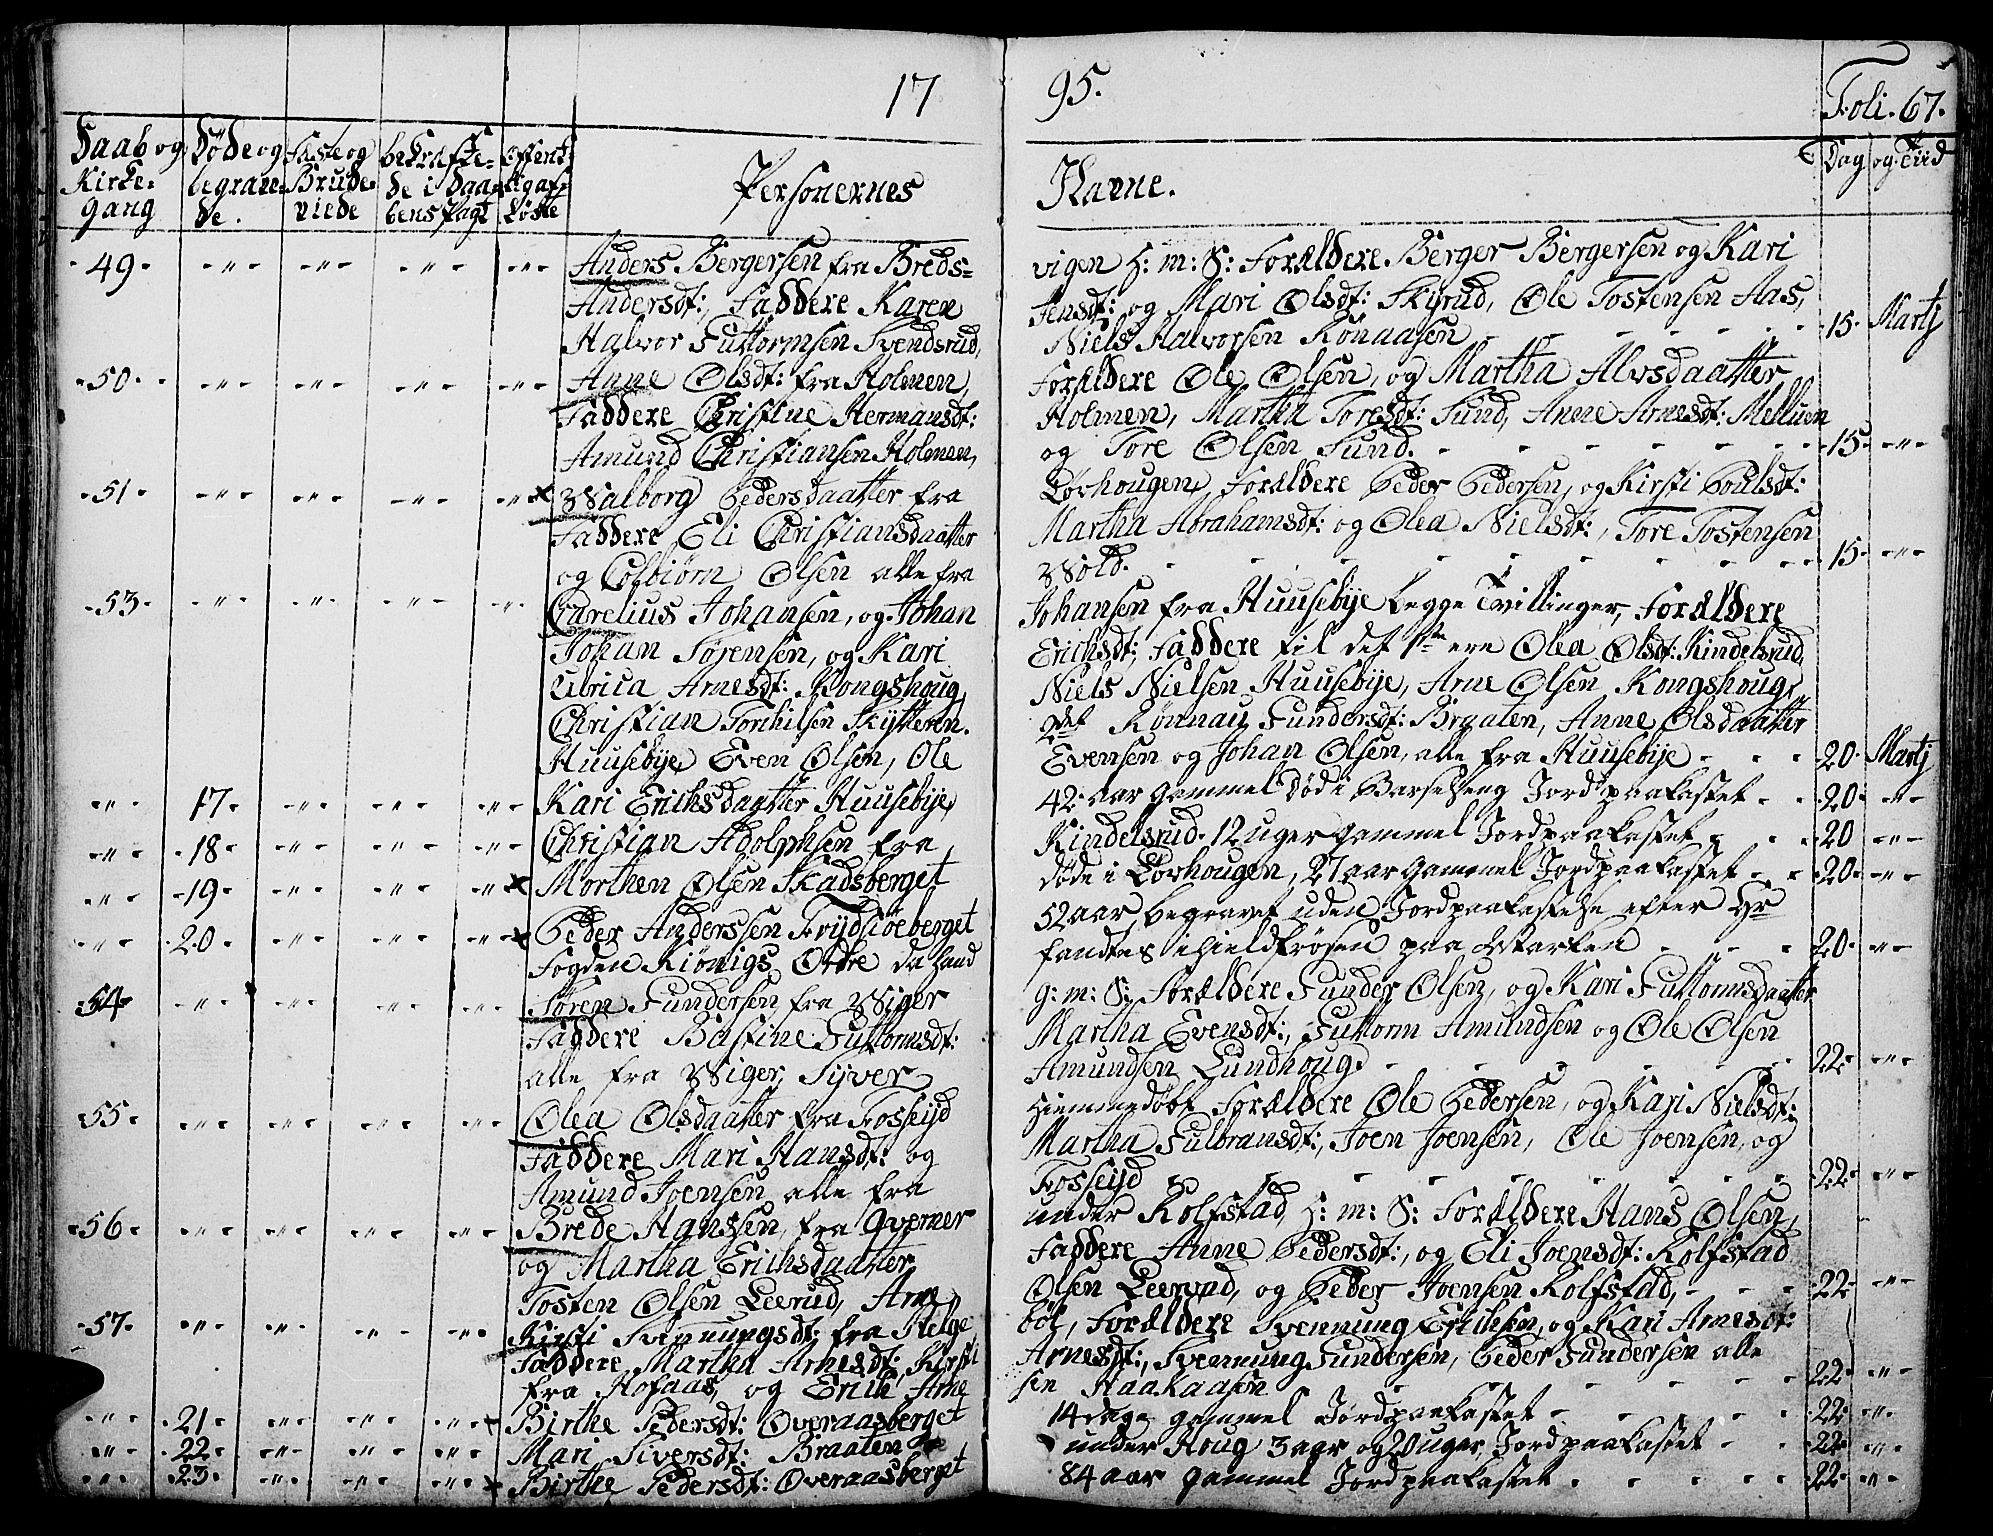 17 95. Foli. 67.
Daab og Kirke-gang
Døde og begrave-de.
Faste og Brude-viede
bekræfte-de i Daa-bens Pagt
Offent-lig af-løste
Personernes Navne. Dag og Tiid
49 Anders Bergersen fra Breds= vigen H: m: S: Forældere Berger Bergersen og Kari
Andersdt:, Faddere Karen Jensdt: og Mari Olsdt: Skyrud, Ole Tostensen Aas,
Halvor Guttormsen Svendsrud, Niels Halvorsen Rønaasen 15 Martj
50 Anne Olsdt: fra Holmen, Forældere Ole Olsen, og Martha Alvsdaatter
Faddere Christine Hermansdt: Holmen, Martha Toresdt: Sund, Anne Arnesdt: Melluen
Amund Christiansen Holmen, og Tore Olsen Sund. 15
51 Walborg Pedersdaatter fra Løvhougen, Forældere Peder Pedersen, og Kirsti Poulsdt:
Faddere Eli Christiansdaatter Martha Abrahamsdt: og Olea Nielsdt:, Tore Tostensen
og Colbiørn Olsen alle fra Wold. 15
53 Carelius Johansen, og Johan Johansen fra Huusebye begge Tvillinger, Forældere
Johan Sørensen, og Kari Erichsdt:, Faddere til det 1ste ere Olea Olsdt: Kindelsrud,
Ulrica Arnesdt: Kongshoug, Niels Nielsen Huusebye, Arne Olsen Kongshoug,
Christian Torchilsen Skytteren. 2det Rønnau Gundersdt: Braaten, Anne Olsdaatter
Huusebye Even Olsen, Ole Evensen og Johan Olsen, alle fra Huusebye 20 Martj
17 Kari Erichsdaatter Huusebye, 42 aar gammel Død i Barselseng Jordpaakastet 20
18 Christian Adolphsen fra Kindelsrud 12 uger gammel Jordpaakastet 20
19 Morthen Olsen Skadsberget døde i Løvhougen, 27 aar gammel Jordpaakastet 20
20 Peder Anderssen Frydsiøeberget 52 aar, begravet uden Jordpaakastelse efter Hr
Fogden Kiønigs Ordre da hand fandtes ihielfrøsen paa Marken 20
54 Søren Gundersen fra Wiger g: m: S: Forældere Gunder Olsen, og Kari Guttormsdaatter
Faddere Bastine Guttormsdt: Martha Evensdt:, Guttorm Amundsen og Ole Olsen
alle fra Wiger, Syver Amundsen Lundhoug 22
55 Olea Olsdaatter fra Fosseyd Hiemmedøbt Forældere Ole Pedersen, og Kari Nielsdt:
Faddere Mari Hansdt: og Martha Gulbransdt:, Joen Joensen, Ole Joensen, og
Amund Joensen alle fra Fosseyd 22
56 Brede Hanssen, fra Qverner under Rolfstad, H: m: S: Forældere Hans Olsen,
og Martha Erichsdaatter Faddere Anne Pedersdt:, og Eli Joensdt: Rolfstad
Tosten Olsen Leerud, Arne Olsen Leerud, og Peder Joensen Rolfstad, 22
57 Kirsti Svennungsdt: fra Helge bøl, Forældere Svennung Erichsen, og Kari Arnesdt:
Faddere Martha Arnesdt:, Kirsti Arnesdt:, Svennung Gundersen, Peder Gundersen alle
fra Hofaas, og Erich Arne sen Haakaasen 22
21 Birthe Pedersdt: Overaasberget 14 dage gammel Jordpaakastet 22
22 Mari Siversdt: Braaten under Houg 3 aar og 20 uger, Jordpaakastet 22
23 Birthe Pedersdt: Overaasberget 84 aar gammel Jordpaakastet 22